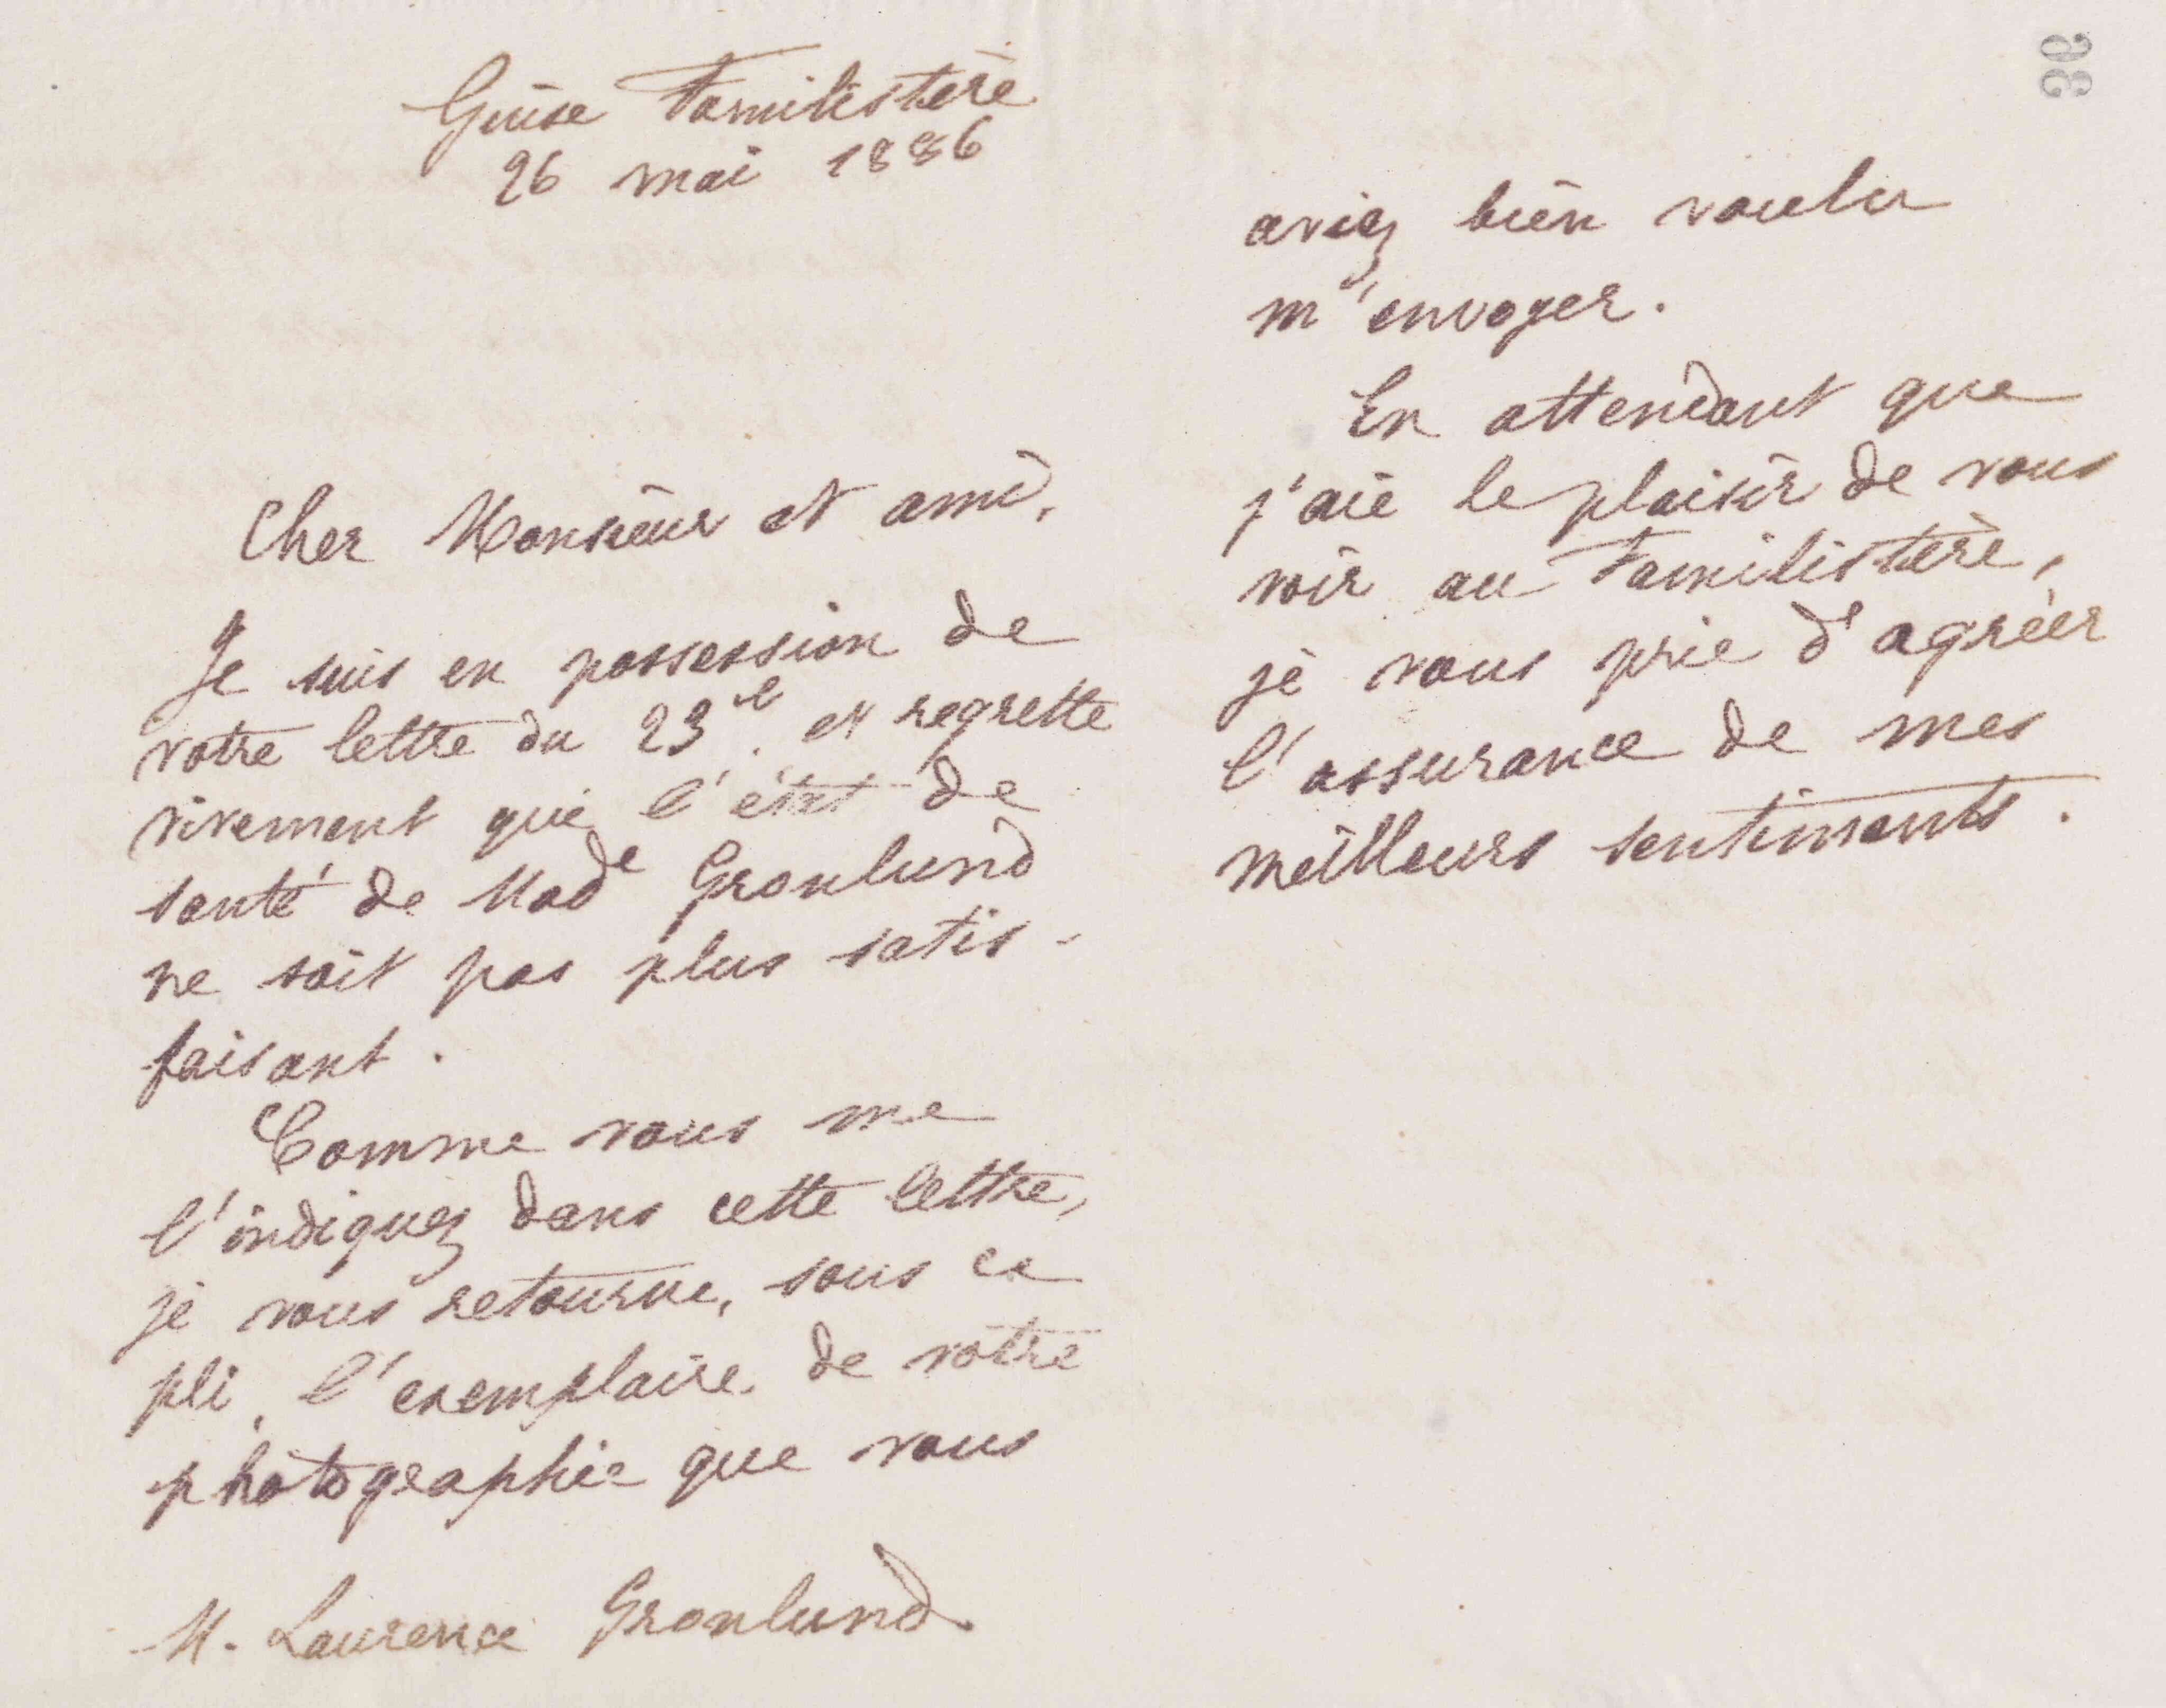 Guise Familistère
26 mai 1886
Cher Monsieur et ami,
Je suis en possession de
votre lettre du 23 et regrette
vivement que l'état de
santé de Made Gronlund
ne soit pas plus satis-
faisant.
Comme vous me
l'indiquez dans cette lettre,
je vous retourne, sous ce
pli, l'exemplaire de votre
photographie que vous
M. Laurence Gronlund
aviez bien voulu
m'envoyer.
En attendant que
j'aie le plaisir de vous
voir au Familistère,
je vous prie d'agréer
l'assurance de mes
meilleurs sentiments.